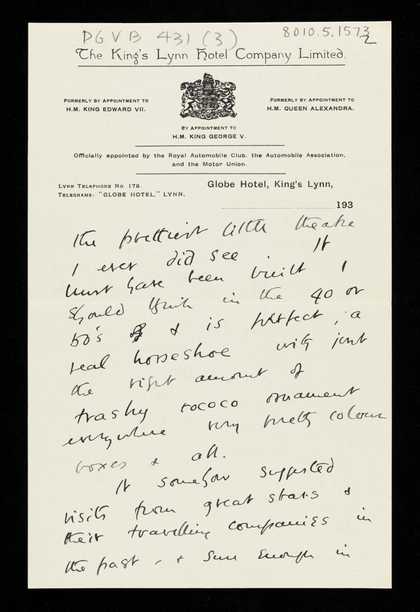 DG VB 431 (3)
8010.5.1573
2
The King's Lynn Hotel Company Limited.
FORMERLY BY APPOINTMENT TO
H.M. KING EDWARD VII.
FORMERLY BY APPOINTMENT TO
H.M. QUEEN ALEXANDRA.
BY APPOINTMENT TO
H.M. KING GEORGE V.
Officially appointed by the Royal Automobile Club, the Automobile Association,
and the Motor Union.
LYNN TELEPHONE NO 178.
TELEGRAMS: "GLOBE HOTEL," LYNN.
Globe Hotel, King's Lynn,
193
the prettiest little theatre
I ever did see. It
must have been built I
should think in the 40 or
50's & is perfect; a
real horseshoe with just
the right amount of
trashy rococo ornament
everywhere very pretty colour
boxes & all.
It somehow suggested
visits from great stars &
their travelling companies in
the past, & sure enough in